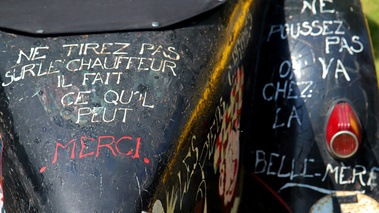 NE TIREZ PAS
SUR LE CHAUFFEUR
IL FAIT
CE QU'IL
PEUT
.MERCI.
NE
POUSSEZ PAS
ON VA
CHEZ
LA
BELLE-MERE